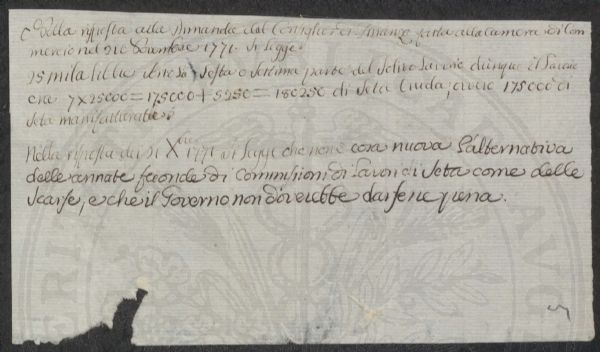 Nella risposta alle Dimande dal Consiglier di Finanze fatta alla Camera di Com
mercio nel 31 Decembre 1771. Si legge
25 mila libbre sono la sesta o settima parte del solito lavorio dunque il lavoro
era 7 x 25000 = 175000 + 5250 = 180250 di Seta Cruda, ovvero 175000 di
Seta manifatturabile.
Nella risposta dei 31 Xbre 1771 si legge che non è cosa nuova l'alternativa
delle annate feconde di Commissioni di Lavori di Seta come delle
Scarse, e che il Governo non dovrebbe darsene pena.